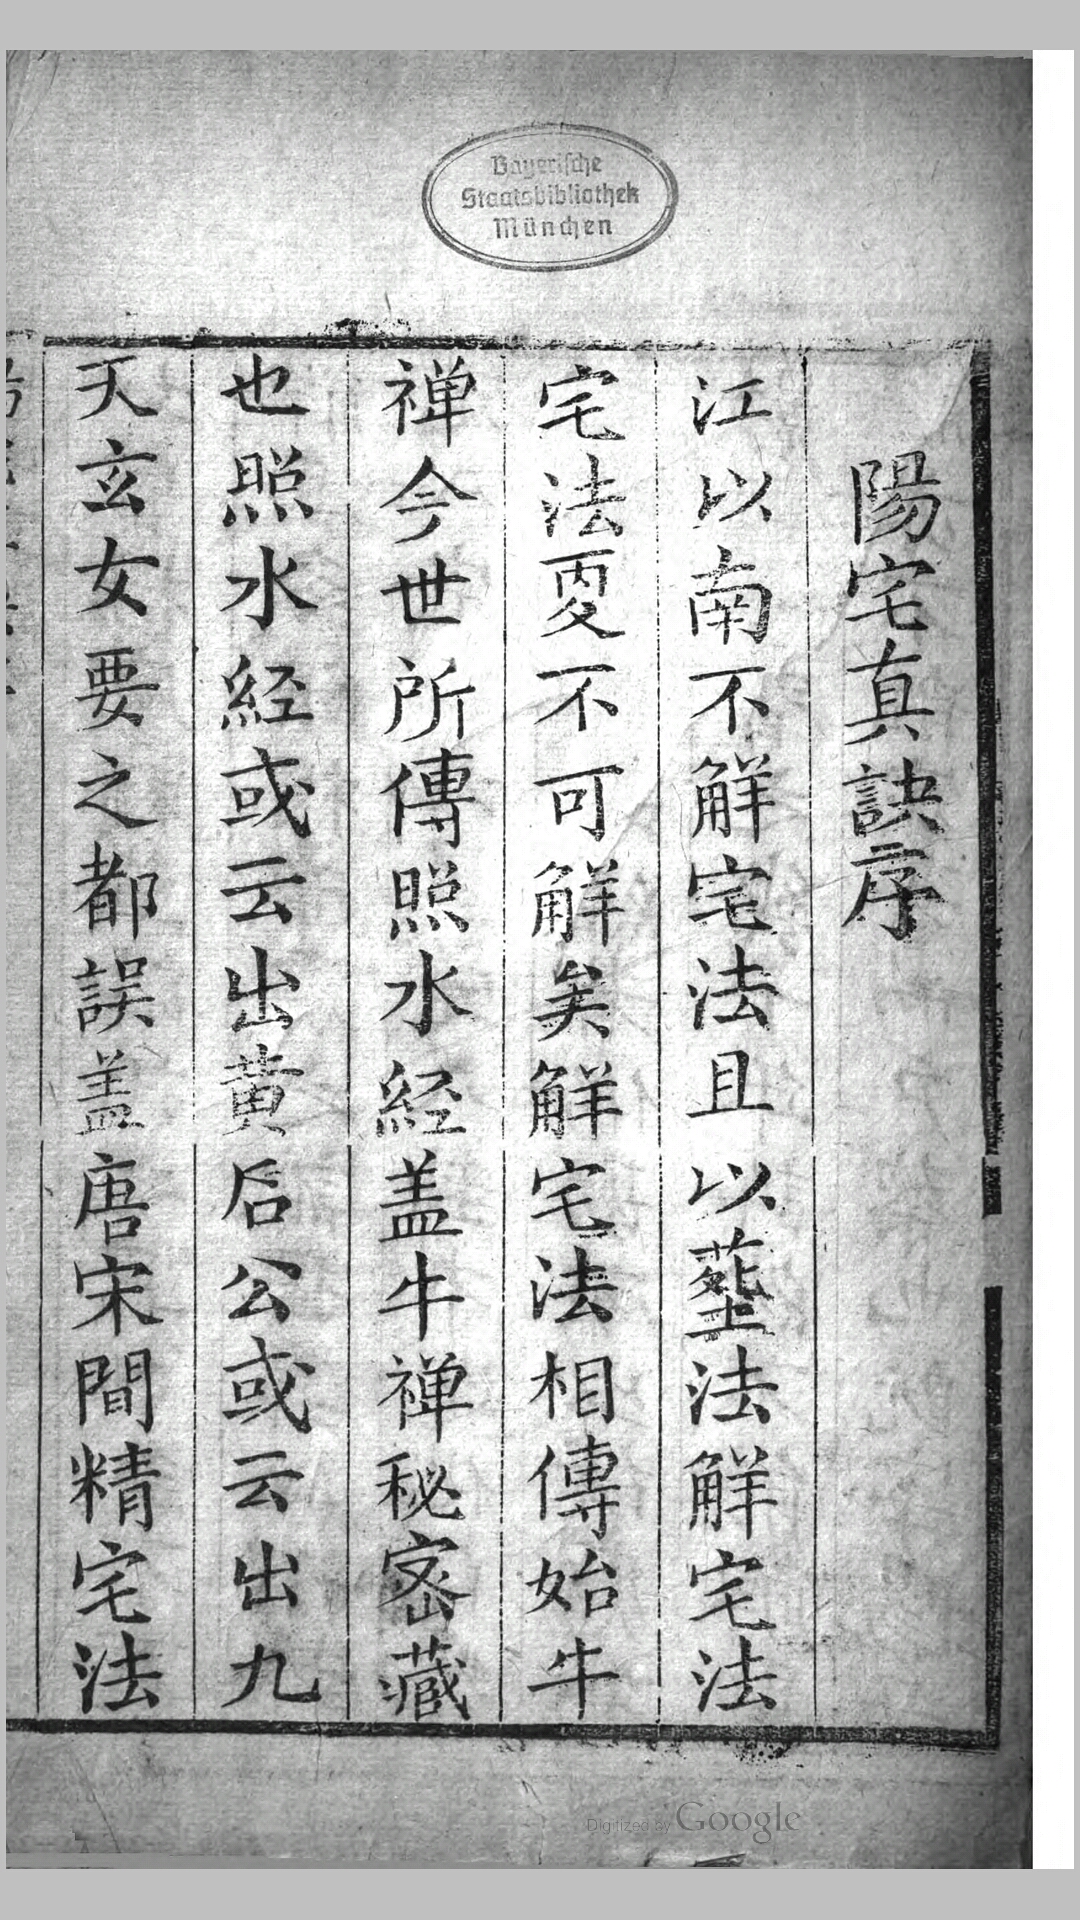 Bayerische
Staatsbibliothek
München
陽宅真訣序
江以南不觧宅法且以塟法觧宅法
宅法更不可觧矣觧宅法相傳始牛
禅今世所傳照水經盖牛禅秘宻藏
也照水經或云出黄后公或云出九
天玄女要之都誤盖唐宋間精宅法
Digitized by Google